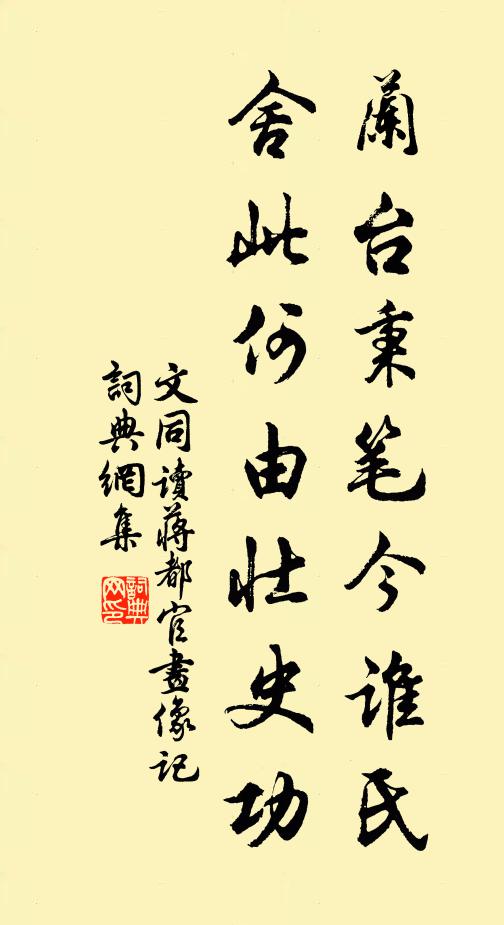 蘭台秉笔今誰氏
舍此何由壮史功
文同讀蔣都官畫像记
詞典網集
詞典网印